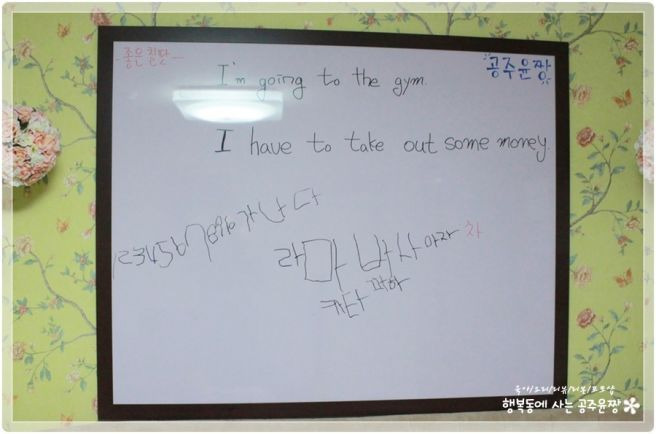 좋은칠판
공주윤짱
I'm going to the gym.
I have to take out some money.
12345678910 가 나 다
라 마 바 사 아자 차
카타 파하
행복동에 사는 공주윤짱